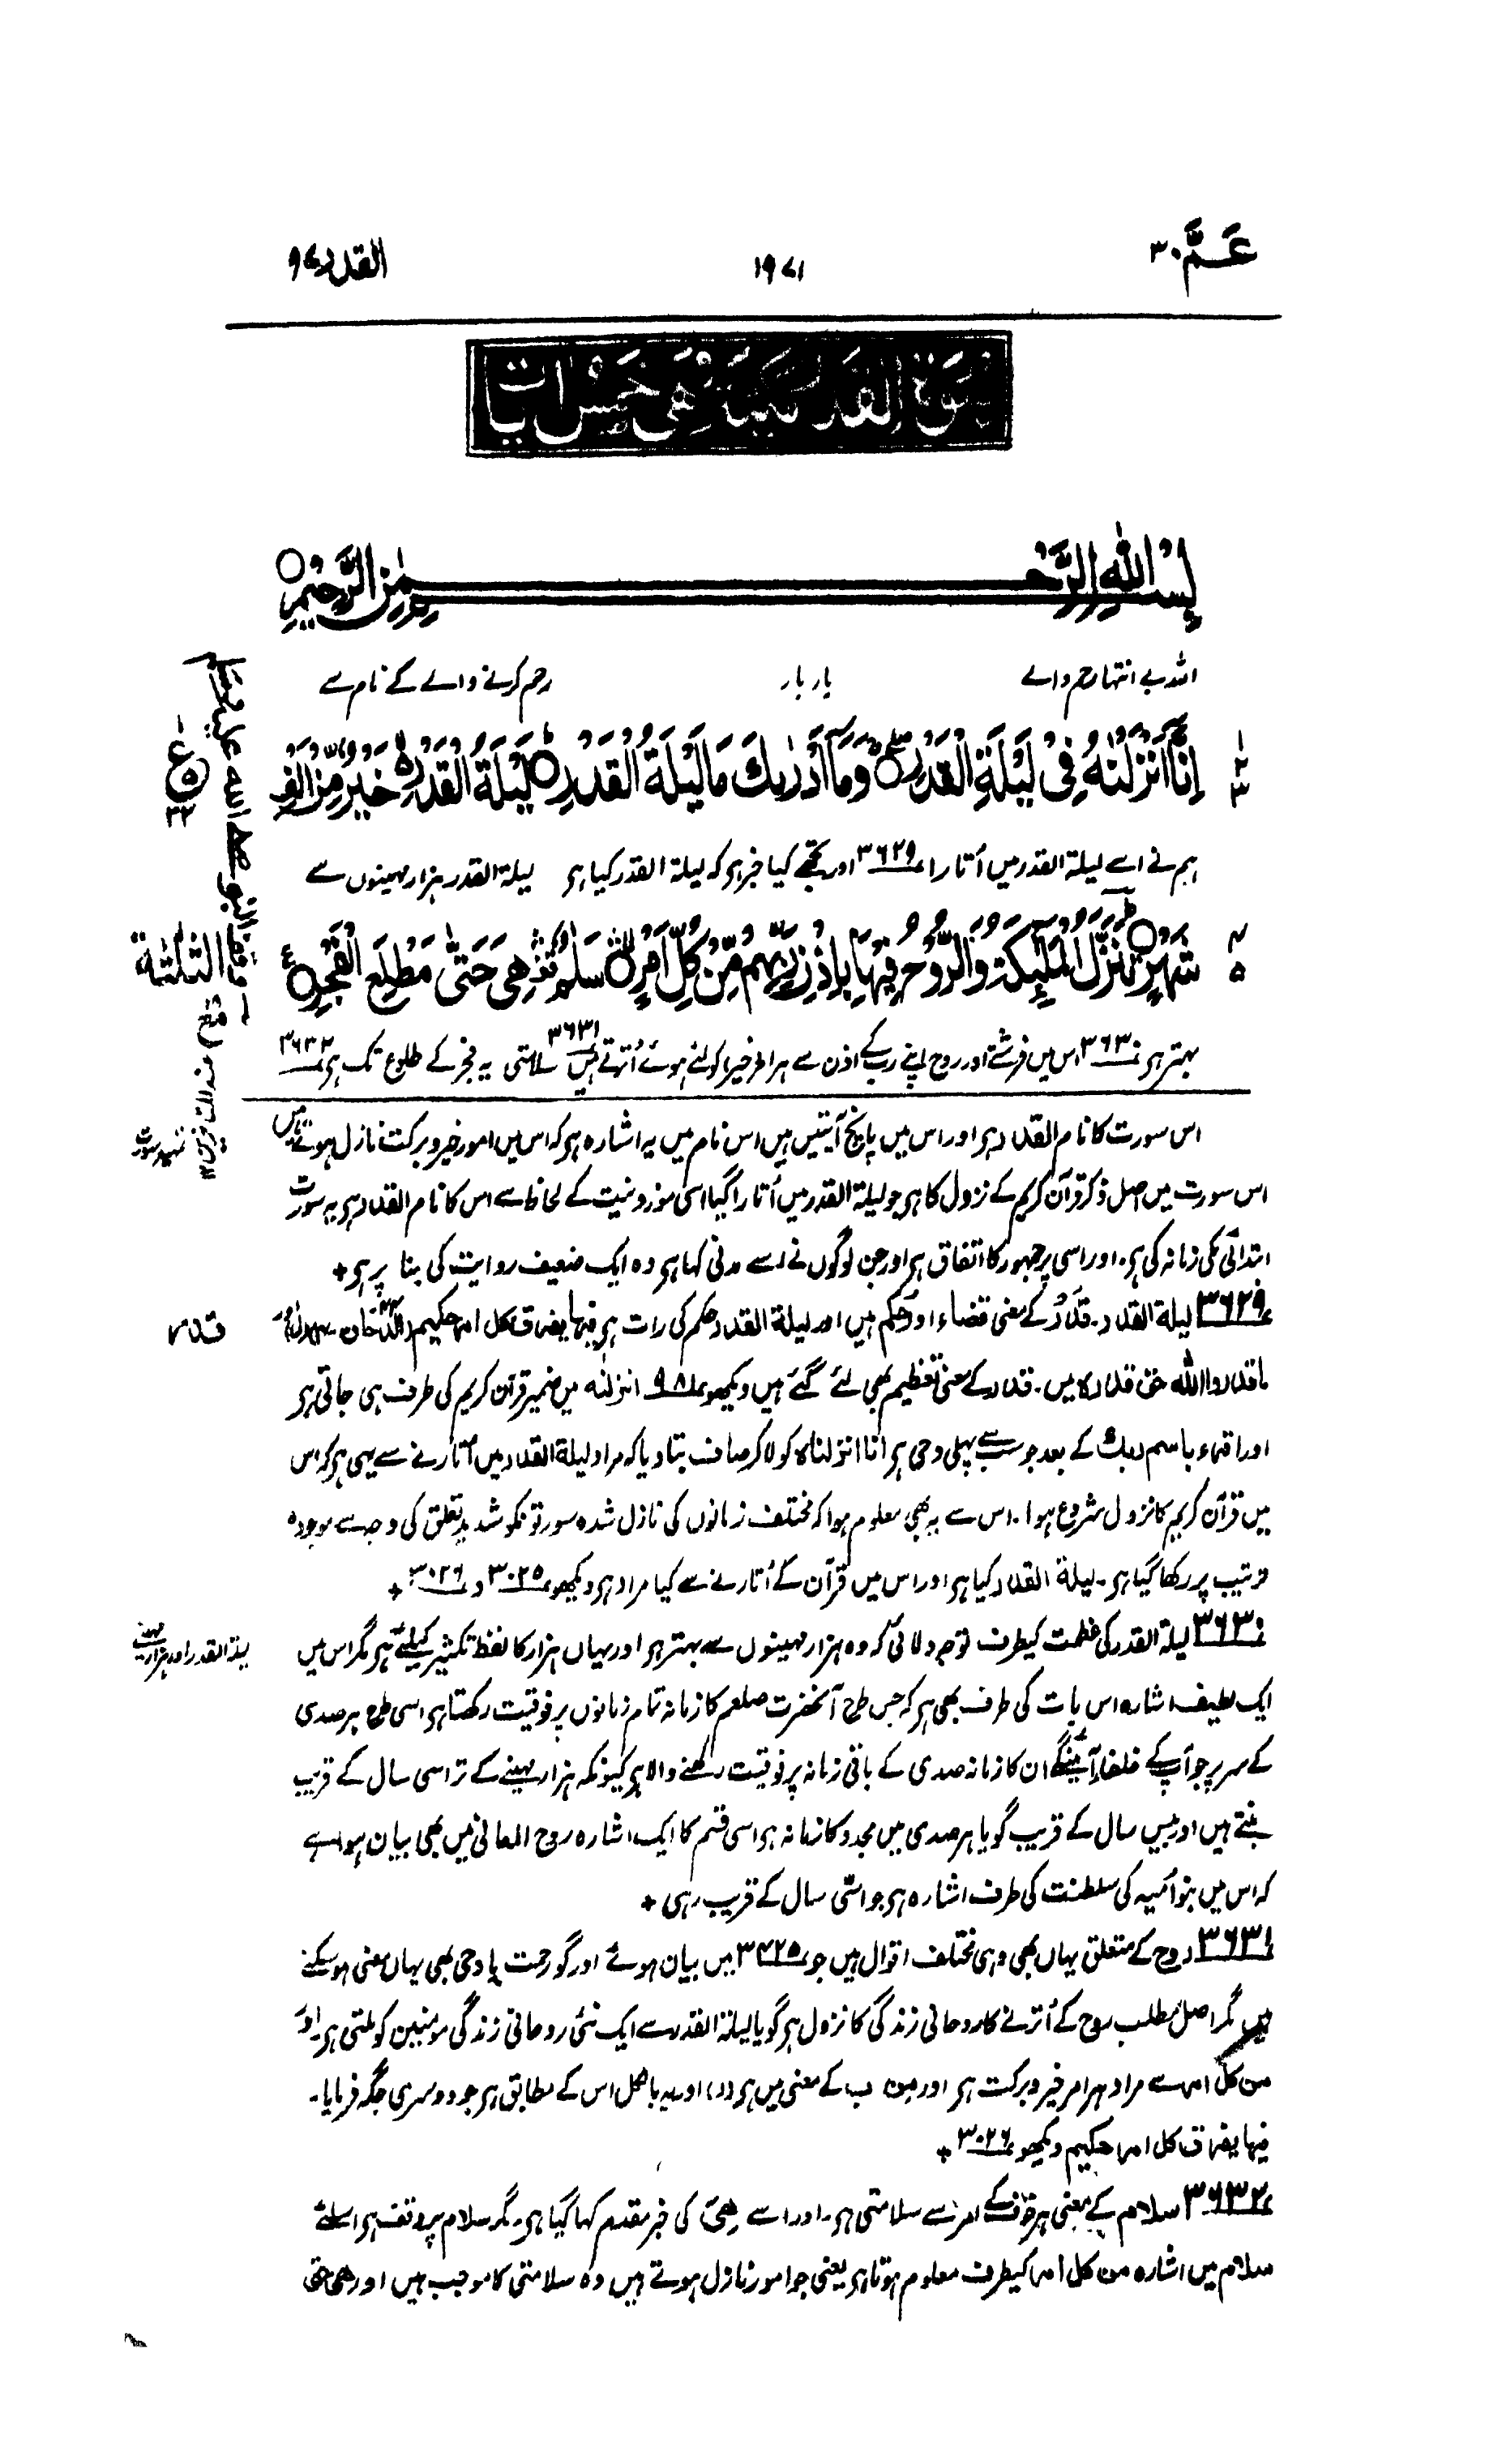 عَمَّ ۳۰
۱۹۷۱
القدر ۹۷
سورۃ القدر مکیۃ وھی خمس اٰیات
بِسْمِ اللّٰهِ الرَّحْمٰنِ الرَّحِیْمِ ○
اللہ بے انتہا رحم والے بار بار رحم کرنے والے کے نام سے
اِنَّاۤ اَنْزَلْنٰهُ فِیْ لَیْلَةِ الْقَدْرِ ○ وَمَاۤ اَدْرٰىكَ مَا لَیْلَةُ الْقَدْرِ ○ لَیْلَةُ الْقَدْرِ خَیْرٌ مِّنْ اَلْفِ
۱
۲
۳
ہم نے اسے لیلۃ القدر میں اُتارا ۳۶۲۹ اور تجھے کیا خبر ہو کہ لیلۃ القدر کیا ہو لیلۃ القدر ہزار مہینوں سے
شَهْرٍ ○ تَنَزَّلُ الْمَلٰٓىِٕكَةُ وَالرُّوْحُ فِیْهَا بِاِذْنِ رَبِّهِمْ مِّنْ كُلِّ اَمْرٍ ○ سَلٰمٌ هِیَ حَتّٰی مَطْلَعِ الْفَجْرِ ○
۴
۵
بہتر ہی ۳۶۳۰ اس میں فرشتے اور روح اپنے رب کے اذن سے ہر امر خیر کو لئے ہوئے اُترتے ہیں ۳۶۳۱ سلامتی یہ فجر کے طلوع تک ہی ۳۶۳۲
اس سورت کا نام القدر ہی اور اس میں پانچ آیتیں ہیں اس نام میں یہ اشارہ ہی کہ اس میں امور خیر و برکت نازل ہوتے ہیں
اس سورت میں اصل ذکر قرآن کریم کے نزول کا ہی جو لیلۃ القدر میں اُتارا گیا اسی موزونیت کے لحاظ سے اس کا نام القدر ہی یہ سورت
ابتدائی مکی زمانہ کی ہی۔ اور اسی پر جمہور کا اتفاق ہی اور جن لوگوں نے اسے مدنی کہا ہی وہ ایک ضعیف روایت کی بنا پر ہی +
۳۶۲۹ لیلۃ القدر۔ قَدْر کے معنی قضاء اور حکم ہیں اور لیلۃ القدر حکم کی رات ہی فیها یفرق کل امر حکیم (الدخان
قدر
ما قدروا الله حق قدرہ میں۔ قدر کے معنی تعظیم بھی لئے گئے ہیں دیکھو ۹۸۱ انزلنٰه میں ضمیر قرآن کریم کی طرف ہی جاتی ہی
اور اقرء باسم ربك کے بعد جو سب سے پہلی وحی ہی انا انزلناہ کو لا کر صاف بتا دیا کہ مراد لیلۃ القدر میں اُتارنے سے یہی ہی کہ اس
میں قرآن کریم کا نزول شروع ہوا۔ اس سے یہ بھی معلوم ہوا کہ مختلف زمانوں کی نازل شدہ سورتونکو شدید تعلق کی وجہ سے موجودہ
ترتیب پر رکھا گیا ہی۔ لیلۃ القدر کیا ہی اور اس میں قرآن کے اُتارنے سے کیا مراد ہی دیکھو ۳۰۲۵ و ۳۰۲۶ +
۳۶۳۰ لیلۃ القدر کی عظمت کیطرف توجہ دلائی کہ وہ ہزار مہینوں سے بہتر ہی اور یہاں ہزار کا لفظ تکثیر کیلئے ہی مگر اس میں
لیلۃ القدر اور ہزار مہینے
ایک لطیف اشارہ اس بات کی طرف بھی ہی کہ جس طرح آنحضرت صلعم کا زمانہ تمام زمانوں پر فوقیت رکھتا ہی اسی طرح ہر صدی
کے سر پر جو آپ کے خلفاء آئینگے ان کا زمانہ صدی کے باقی زمانہ پر فوقیت رکھنے والا ہی کیونکہ ہزار مہینے کے تراسی سال کے قریب
بنتے ہیں اور بیس سال کے قریب گویا ہر صدی میں مجدد کا زمانہ ہی اسی قسم کا ایک اشارہ روح المعانی میں بھی بیان ہوا ہے
کہ اس میں بنو اُمیہ کی سلطنت کی طرف اشارہ ہی جو اسّی سال کے قریب رہی +
۳۶۳۱ روح کے متعلق یہاں بھی وہی مختلف اقوال ہیں جو ۳۴۲۵ میں بیان ہوئے اور گو رحمت یا وحی بھی یہاں معنی ہو سکتے
ہیں مگر اصل مطلب روح کے اُترنے کا روحانی زندگی کا نزول ہی گویا لیلۃ القدر سے ایک نئی روحانی زندگی مومنین کو ملتی ہی۔ اور
من کل امر سے مراد ہر امر خیر و برکت ہی اور مِن ب کے معنی میں ہی (ر) اور یہ بالکل اس کے مطابق ہی جو دوسری جگہ فرمایا۔
فیها یفرق کل امر حکیم دیکھو ۳۰۲۶ +
۳۶۳۲ سلام کے معنی ہر خوف کے امر سے سلامتی ہی۔ اور اسے هِیَ کی خبر مقدم کہا گیا ہی۔ مگر سلام پر وقف ہی اسلئے
سلام میں اشارہ من کل امر کیطرف معلوم ہوتا ہی یعنی جو امور نازل ہوتے ہیں وہ سلامتی کا موجب ہیں اور هی حتی